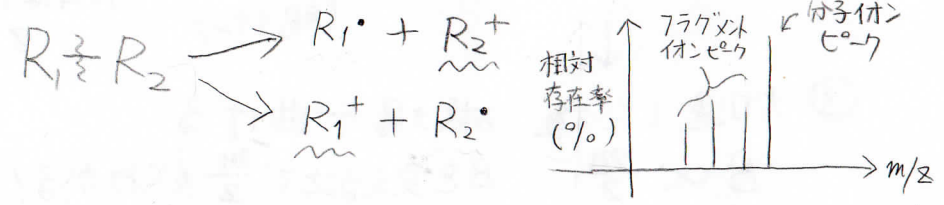 R₁ ⫶ R₂
R₁• + R₂⁺
R₁⁺ + R₂•
相対
存在率
(%)
フラグメント
イオンピーク
分子イオン
ピーク
m/z